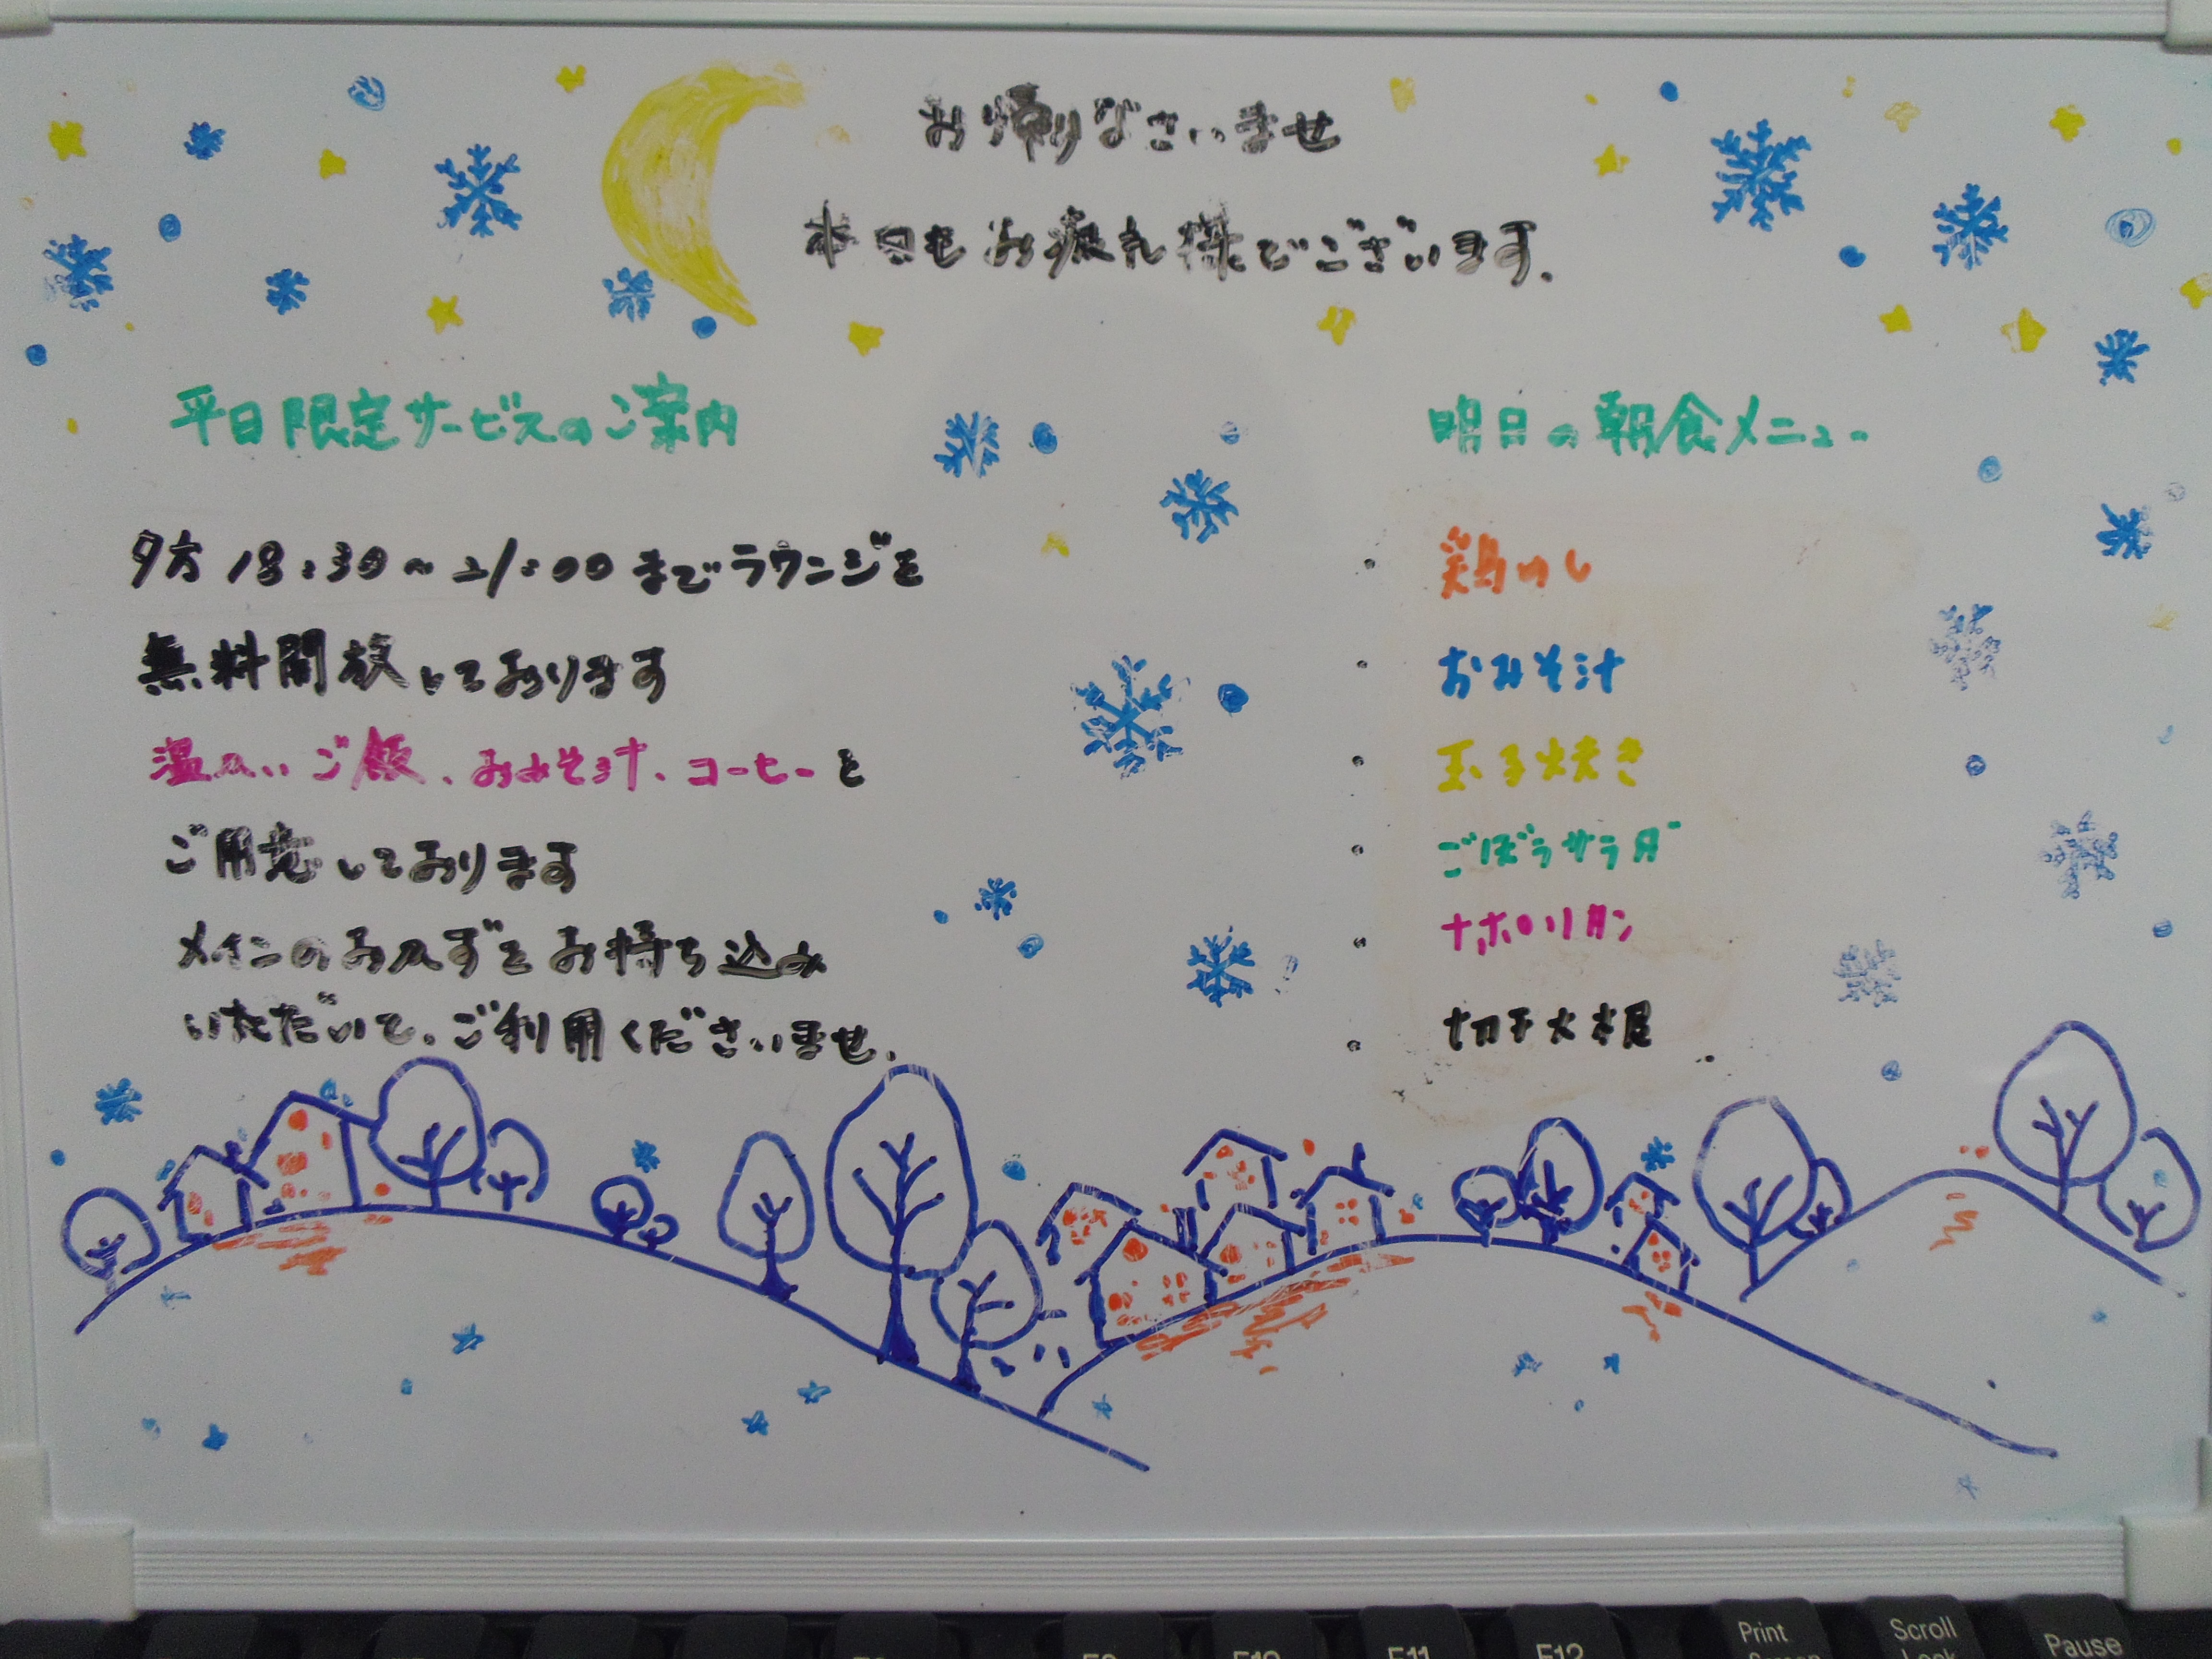 お帰りなさいませ
本日もお疲れ様でございます.
平日限定サービスのご案内
夕方 18:30〜21:00 までラウンジを
無料開放しております
温かいご飯、おみそ汁、コーヒーを
ご用意しております
メインのおかずをお持ち込み
いただいて、ご利用くださいませ.
明日の朝食メニュー
・鶏めし
・おみそ汁
・玉子焼き
・ごぼうサラダ
・ナポリタン
・切干大根
F10
F11
F12
Print
Scroll
Pause